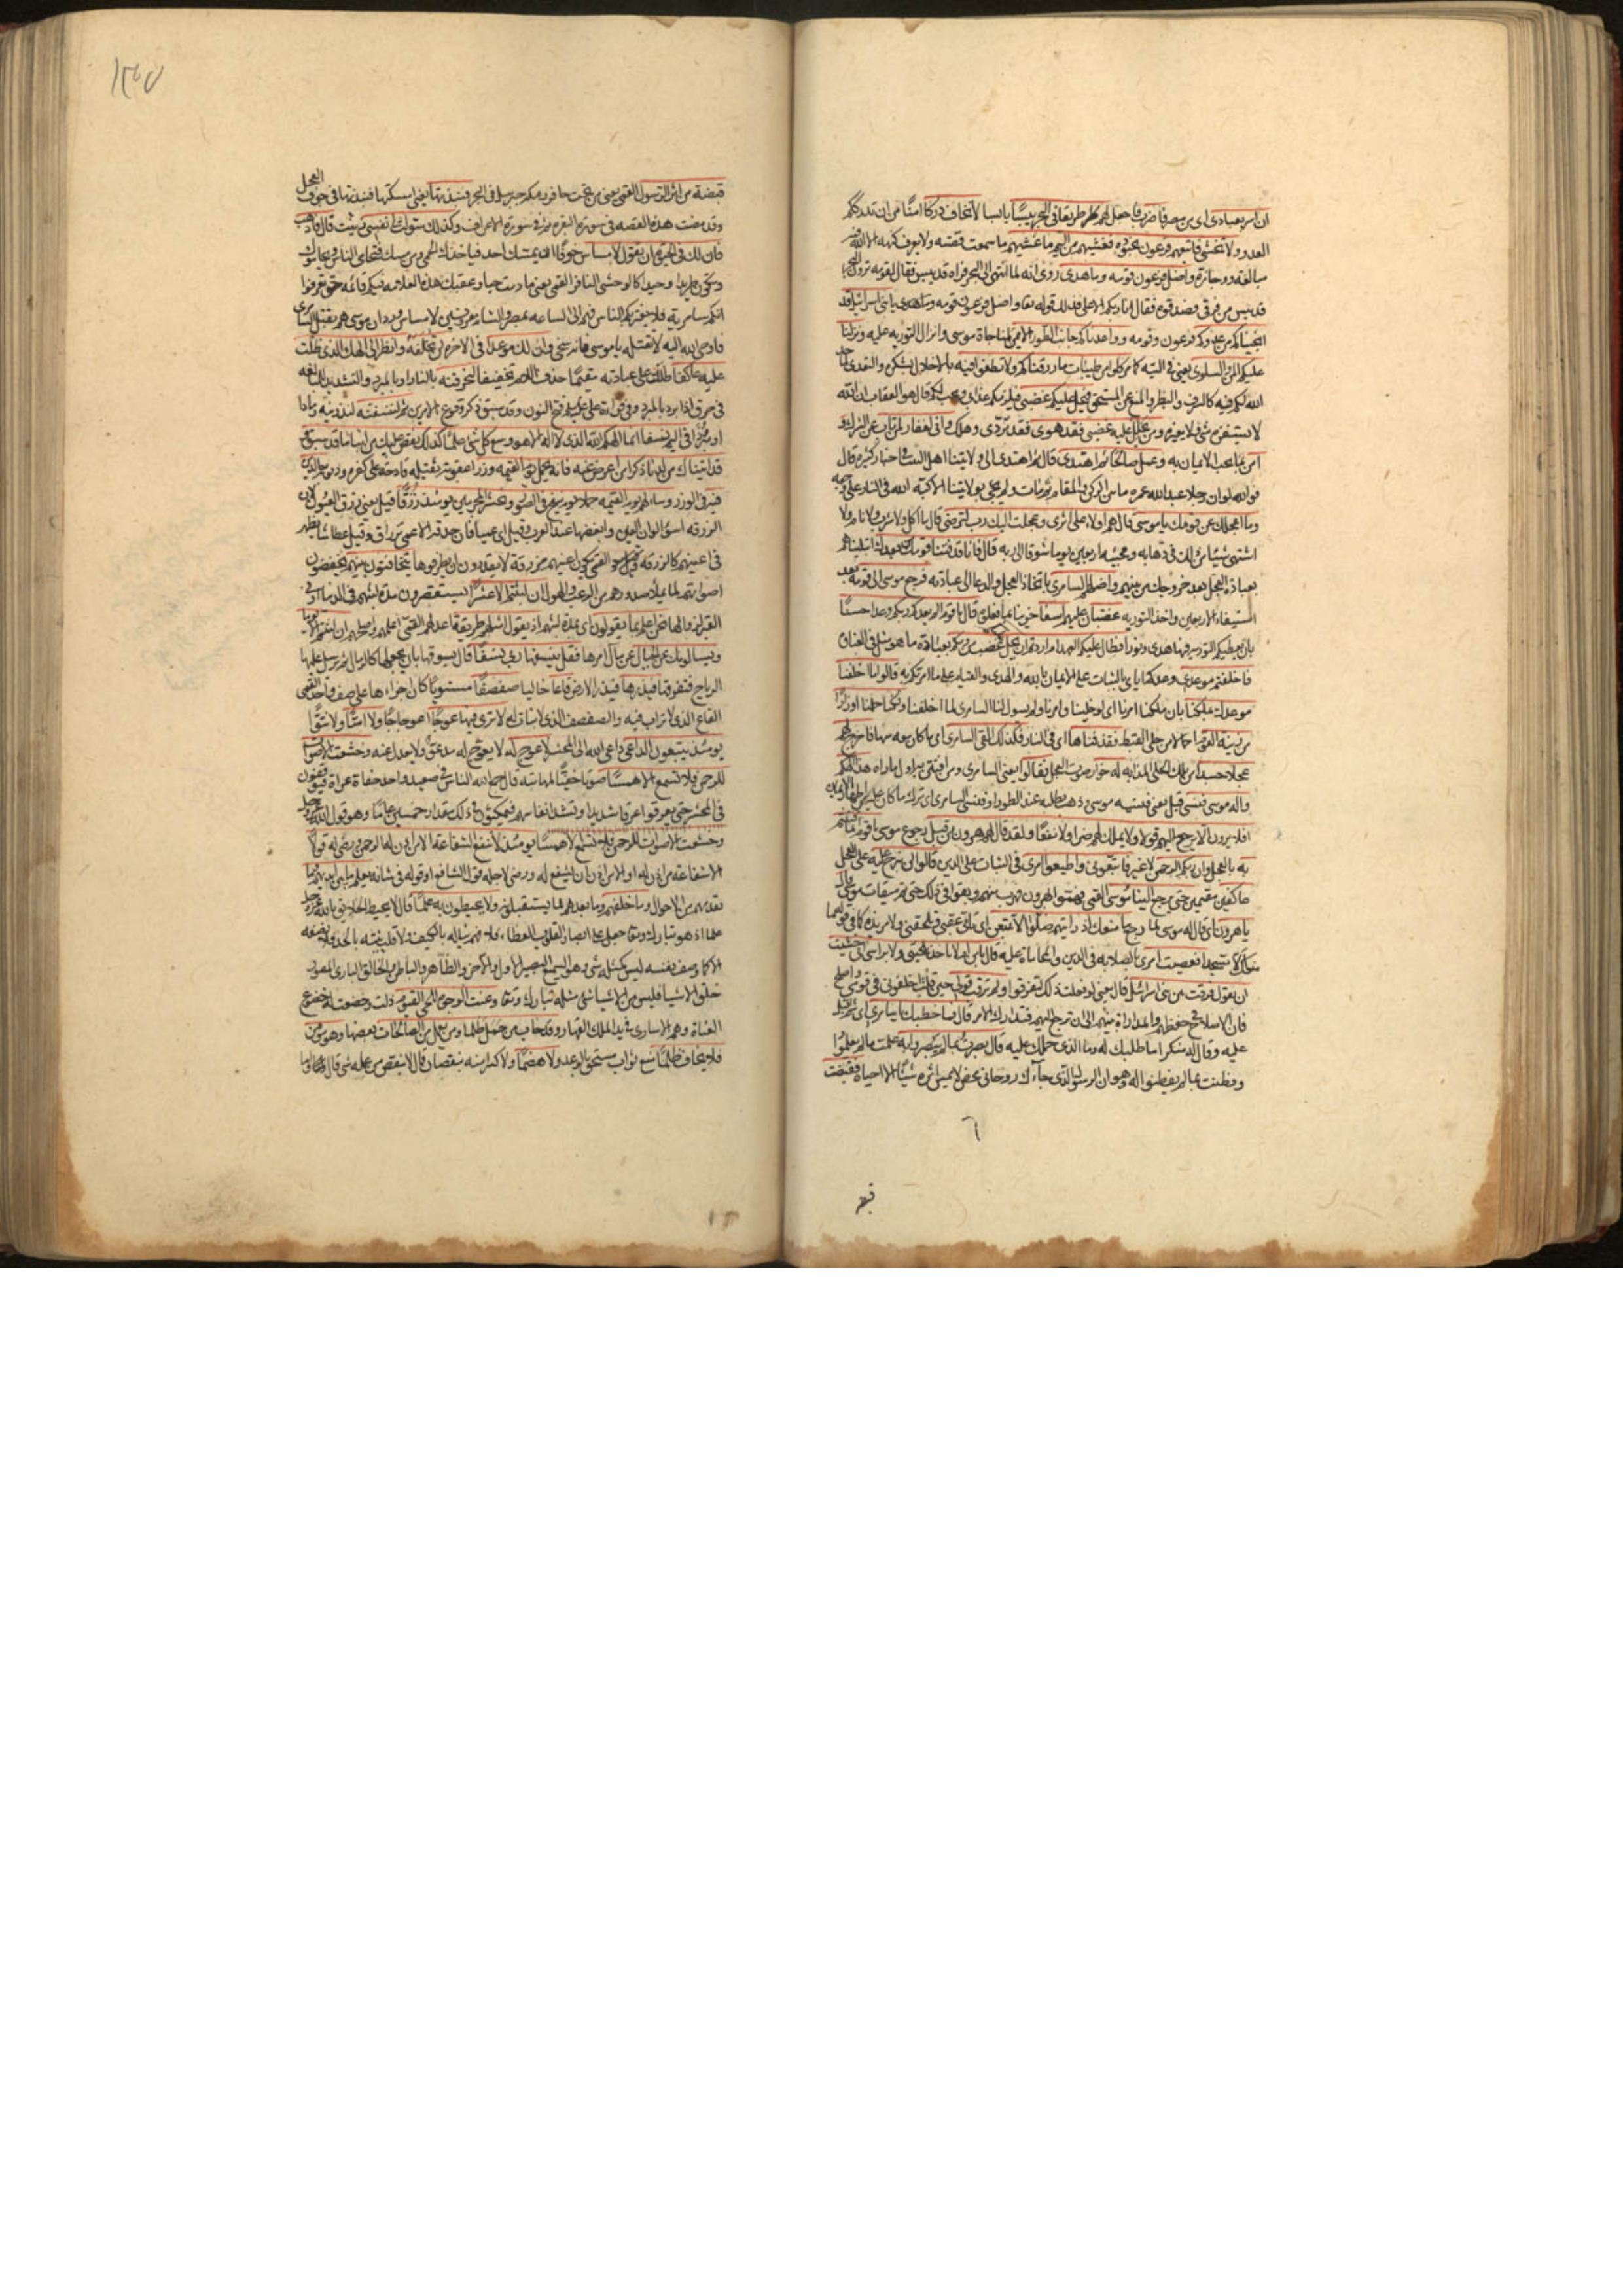 ان اسر بعبادى اى من مصر فاضرب فاجعل لهم طريقا فى البحر يبسا يابسا لا تخاف دركا امنا من ان تدرككم
العدو ولا تخشى فاتبعهم فرعون بجنوده فغشيهم من اليم ما غشيهم ما سمعت قصته ولا يعرف كنهه الا الله فيه
مبالغة ووجازة واضل فرعون قومه وما هدى روى انه لما انتهى الى البحر فراه قد يبس فقال لقومه ترون البحر
قد يبس من فرقى فصدقوه فقال انا ربكم الاعلى فذلك قوله تعا واضل فرعون قومه وما هدى يا بنى اسرائيل قد
انجيناكم من عدوكم فرعون وقومه وواعدناكم جانب الطور الايمن لمناجاة موسى وانزال التورية عليه ونزلنا
عليكم المن والسلوى يعنى فى التيه كما مر كلوا من طيبات ما رزقناكم ولا تطغوا فيه بالاخلال بشكره والتعدى لما حد
الله لكم فيه كالسرف والبطر والمنع عن المستحق فيحل عليكم غضبى فيلزمكم عذابى ويجب لكم قال هو العقاب ان الله
لا يستفزه شئ ولا يغيره ومن يحلل عليه غضبى فقد هوى فقد تردى وهلك وانى لغفار لمن تاب عن الشرك و
امن بما يجب الايمان به وعمل صالحا ثم اهتدى قال ثم اهتدى الى ولايتنا اهل البيت فى اخبار كثيرة قال
فوالله لو ان رجلا عبد الله عمره ما بين الركن والمقام ثم مات ولم يجئ بولايتنا الا كبه الله فى النار على وجهه
وما اعجلك عن قومك يا موسى قال هم اولاء على اثرى وعجلت اليك رب لترضى قال ما اكل ولا شرب ولا نام ولا
اشتهى شيئا من ذلك فى ذهابه ومجيئه اربعين يوما شوقا الى ربه قال فانا قد فتنا قومك من بعدك ابتليناهم
بعبادة العجل بعد خروجك من بينهم واضلهم السامرى باتخاذ العجل والدعا الى عبادته فرجع موسى الى قومه بعد
استيفاء الاربعين واخذ التورية غضبان عليهم اسفا حزينا بما فعلوه قال يا قوم الم يعدكم ربكم وعدا حسنا
بان يعطيكم التورية فيها هدى ونور افطال عليكم العهد ام اردتم ان يحل عليكم غضب من ربكم بعبادة ما هو مثل فى الغباوة
فاخلفتم موعدى وعدكم اياى بالثبات على الايمان بالله والهدى والقيام على ما امرتكم به قالوا ما اخلفنا
موعدك بملكنا بان ملكنا امرنا اى لو خلينا وامرنا ولم يسول لنا السامرى لما اخلفناه ولكنا حملنا اوزارا
من زينة القوم احمالا من حلى القبط فقذفناها اى فى النار فكذلك القى السامرى اى ما كان معه منها فاخرج لهم
عجلا جسدا من تلك الحلى المذابة له خوار صوت العجل فقالوا يعنى السامرى ومن افتتن به اول ما راه هذا الهكم
واله موسى فنسى قيل يعنى فنسيه موسى وذهب يطلبه عند الطور او فنسى السامرى اى ترك ما كان عليه من اظهار الايمان
افلا يرون الا يرجع اليهم قولا ولا يملك لهم ضرا ولا نفعا ولقد قال لهم هرون من قبل رجوع موسى يا قوم انما فتنتم
به بالعجل وان ربكم الرحمن لا غير فاتبعونى واطيعوا امرى فى الثبات على الدين قالوا لن نبرح عليه على العجل
عاكفين مقيمين حتى يرجع الينا موسى القمى فهموا بهرون فهرب منهم وبقوا فى ذلك حتى تم ميقات موسى قال
يا هرون اى قال له موسى لما رجع ما منعك اذ رايتهم ضلوا الا تتبعن اى تاتى عقبى وتلحقنى ولا مزيدة كما فى قوله ما
منعك الا تسجد افعصيت امرى بالصلابة فى الدين والمحاماة عليه قال يا بن ام لا تاخذ بلحيتى ولا براسى انى خشيت
ان تقول فرقت بين بنى اسرائيل قال يعنى لو فعلت ذلك لتفرقوا ولم ترقب قولى حين قلت اخلفنى فى قومى واصلح
فان الاصلاح فى حفظهم والمداراة بينهم الى ان ترجع اليهم فتدارك الامر قال فما خطبك يا سامرى اى ثم اقبل
عليه وقال له منكرا ما طلبك له وما الذى حملك عليه قال بصرت بما لم يبصروا به علمت ما لم يعلموا
وفطنت بما لم يفطنوا له وهو ان الرسول الذى جاءك روحانى محض لا يمس اثره شيئا الا احياه فقبضت
قبضة
١٣٥
قبضة من اثر الرسول القمى يعنى من تحت حافر رمكة جبرئيل فى البحر فنبذتها يعنى امسكتها فنبذتها فى جوف العجل
وقد مضت هذه القصة فى سورة البقرة ثم فى سورة الاعراف وكذلك سولت لى نفسى زينت قال فاذهب
فان لك فى الحيوة ان تقول لا مساس خوفا ان يمسك احد فياخذك الحمى ومن مسك فتحامى الناس ويحاموك
وتكون طريدا وحيدا كالوحشى النافر القمى يعنى ما دمت حيا وعقبك هذه العلامة فيكم قائمة حتى تعرفوا
انكم سامرية فلا يغتر بكم الناس فهم الى الساعة بمصر والشام معروفين بلا مساس ثم هم موسى بقتل السامرى
فاوحى الله اليه لا تقتله يا موسى فانه سخى وان لك موعدا فى الاخرة لن تخلفه وانظر الى الهك الذى ظلت
عليه عاكفا ظللت على عبادته مقيما حذف اللام تخفيفا لنحرقنه بالنار او بالمبرد والتشديد للمبالغة
فى حرق اذا برد بالمبرد وفى قراءة على عليه السلم فتح النون وقد سبق ذكر وقوع الامرين ثم لننسفنه لنذرينه رمادا
او مبرودا فى اليم نسفا انما الهكم الله الذى لا اله الا هو وسع كل شئ علما كذلك نقص عليك من انباء ما قد سبق و
قد اتيناك من لدنا ذكرا من اعرض عنه فانه يحمل يوم القيمة وزرا عقوبة ثقيلة فادحة على كفره وذنوبه خالدين
فيه فى الوزر وساء لهم يوم القيمة حملا يوم ينفخ فى الصور ونحشر المجرمين يومئذ زرقا قيل يعنى زرق العيون لان
الزرقة اسوء الوان العين وابغضها عند العرب وقيل اى عميا فان حدقة الاعمى تزراق وقيل عطاشا يظهر
فى اعينهم كالزرقة القمى تكون اعينهم مزرقة لا يقدرون ان يطرفوها يتخافتون بينهم يخفضون
اصواتهم لما يملا صدورهم من الرعب والهول ان لبثتم الا عشرا يستقصرون مدة لبثهم فى الدنيا او فى
القبر نحن اعلم بما يقولون اى بمدة لبثهم اذ يقول امثلهم طريقة اعدلهم القمى اعلمهم واصلحهم ان لبثتم الا يوما
ويسالونك عن الجبال عن مآل امرها فقل ينسفها ربى نسفا قال يسوقها بان يجعلها كالرمال ثم يرسل عليها
الرياح فتفرقها فيذرها فيذر الارض قاعا خاليا صفصفا مستويا كان اجزاءها على صف واحد القمى
القاع الذى لا تراب فيه والصفصف الذى لا نبات له لا ترى فيها عوجا اعوجاجا ولا امتا ولا نتوا
يومئذ يتبعون الداعى داعى الله الى المحشر لا عوج له لا يعوج له مدعو ولا يعدل عنه وخشعت الاصوات
للرحمن فلا تسمع الا همسا صوتا خفيا لمهابته قال جمع الله الناس فى صعيد واحد حفاة عراة فيوقفون
فى المحشر حتى يعرقوا عرقا شديدا وتشتد انفاسهم فيمكثون فى ذلك مقدار خمسين عاما وهو قول الله عز وجل
وخشعت الاصوات للرحمن فلا تسمع الا همسا يومئذ لا تنفع الشفاعة الا من اذن له الرحمن ورضى له قولا
الا شفاعة من اذن له او الا من اذن ان يشفع له ورضى لاجله قول الشافع او قوله فى شانه يعلم ما بين ايديهم ما
تقدمهم من الاحوال وما خلفهم وما بعدهم مما يستقبلونه ولا يحيطون به علما قال لا يحيط الخلايق بالله عز وجل
علما اذ هو تبارك وتعا جعل على ابصار القلوب الغطاء فلا فهم يناله بالكيف ولا قلب يثبته بالحد فلا نصفه
الا كما وصف نفسه ليس كمثله شئ وهو السميع البصير الاول والاخر والظاهر والباطن الخالق البارئ المصور
خلق الاشيا فليس من الاشيا شئ مثله تبارك وتعا وعنت الوجوه للحى القيوم ذلت وخضعت له خضوع
العناة وهم الاسارى فى يد الملك القهار وقد خاب من حمل ظلما ومن يعمل من الصالحات بعضها وهو مؤمن
فلا يخاف ظلما منع ثواب مستحق بالوعد ولا هضما ولا كسرا منه بنقصان قال لا ينقص من عمله شئ